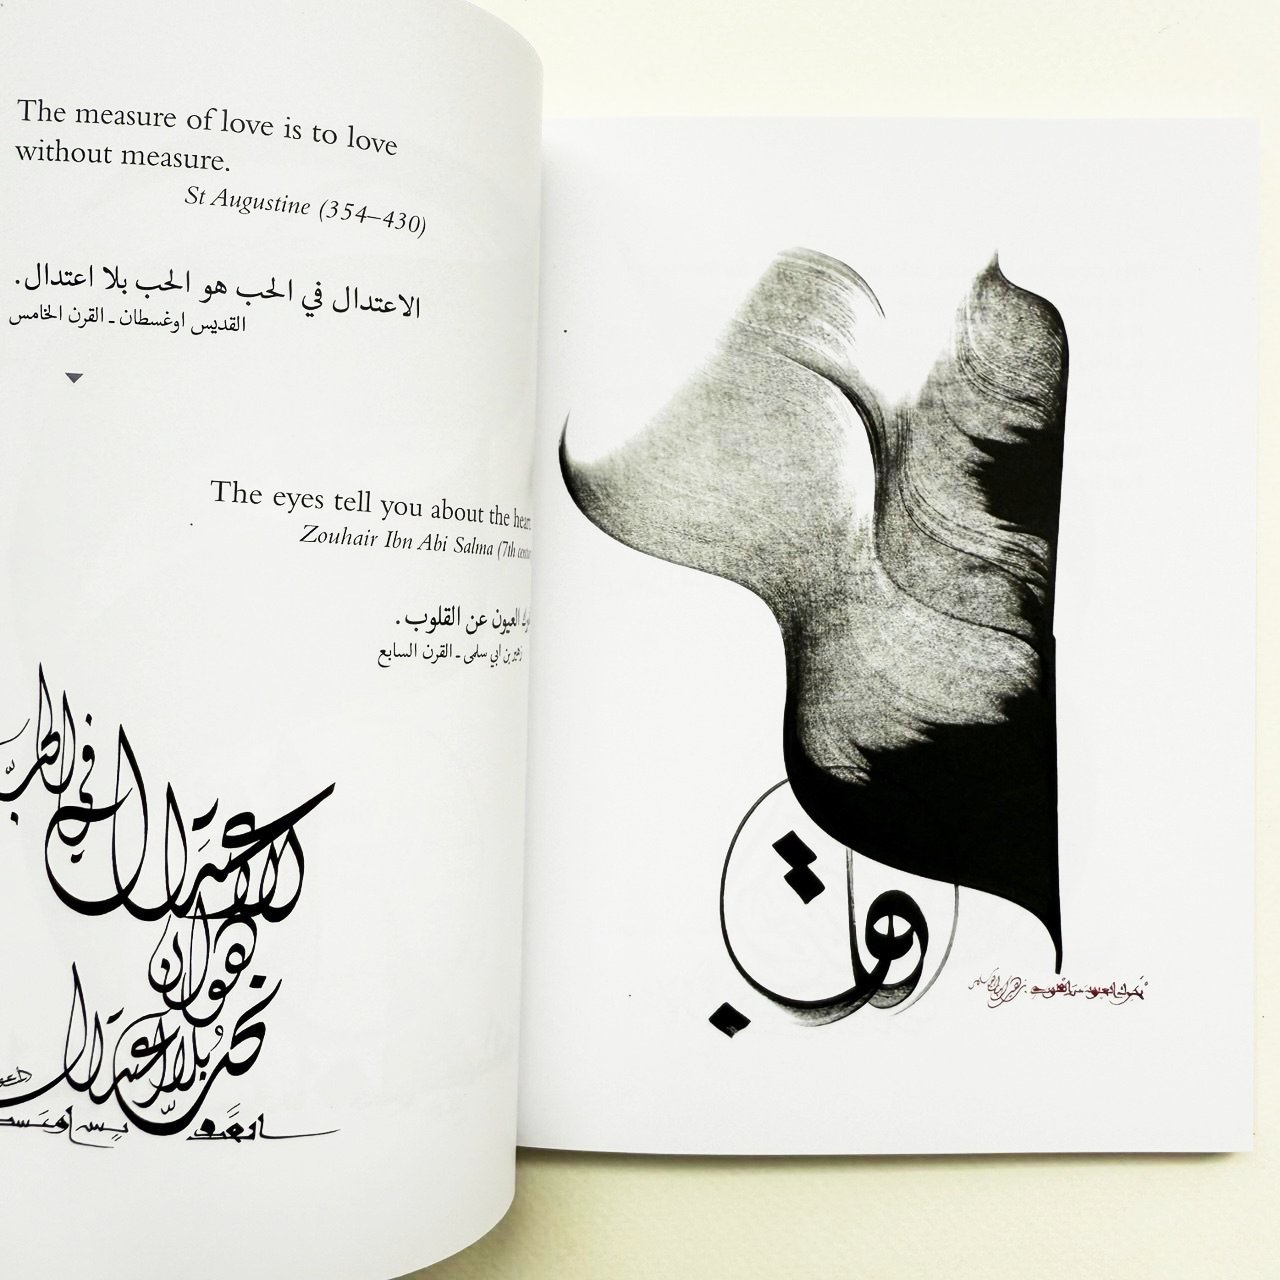 The measure of love is to love
without measure.
St Augustine (354–430)
الاعتدال في الحب هو الحب بلا اعتدال.
القديس اوغسطان ـ القرن الخامس
The eyes tell you about the
Zouhair Ibn Abi Salma (7th
العيون عن القلوب.
زهير بن ابي سلمى ـ القرن السابع
الاعتدال في الحب
هو ان
تحب بلا اعتدال